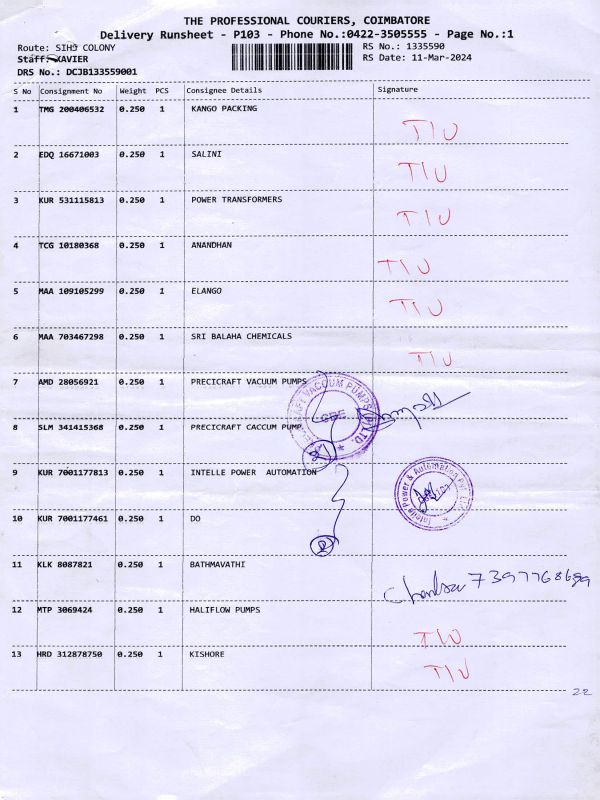 THE PROFESSIONAL COURIERS, COIMBATORE
Delivery Runsheet - P103 - Phone No.:0422-3505555 - Page No.:1
Route: SIHS COLONY RS No.: 1335590
Staff: XAVIER RS Date: 11-Mar-2024
DRS No.: DCJB133559001
S No Consignment No Weight PCS Consignee Details Signature
1 TMG 200406532 0.250 1 KANGO PACKING
TIU
2 EDQ 16671003 0.250 1 SALINI
TIU
3 KUR 531115813 0.250 1 POWER TRANSFORMERS
TIU
4 TCG 10180368 0.250 1 ANANDHAN
TIU
5 MAA 109105299 0.250 1 ELANGO
TIU
6 MAA 703467298 0.250 1 SRI BALAHA CHEMICALS
TIU
7 AMD 28056921 0.250 1 PRECICRAFT VACUUM PUMPS
8 SLM 341415368 0.250 1 PRECICRAFT CACCUM PUMP
9 KUR 7001177813 0.250 1 INTELLE POWER AUTOMATION
Intelle Power & Automation Pvt. Ltd.
10 KUR 7001177461 0.250 1 DO
2
11 KLK 8087821 0.250 1 BATHMAVATHI
12 MTP 3069424 0.250 1 HALIFLOW PUMPS
TIU
13 HRD 312878750 0.250 1 KISHORE
TIU
22